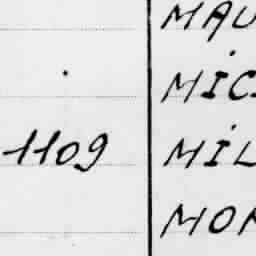 MAU
MİC
1109 MİL
MON